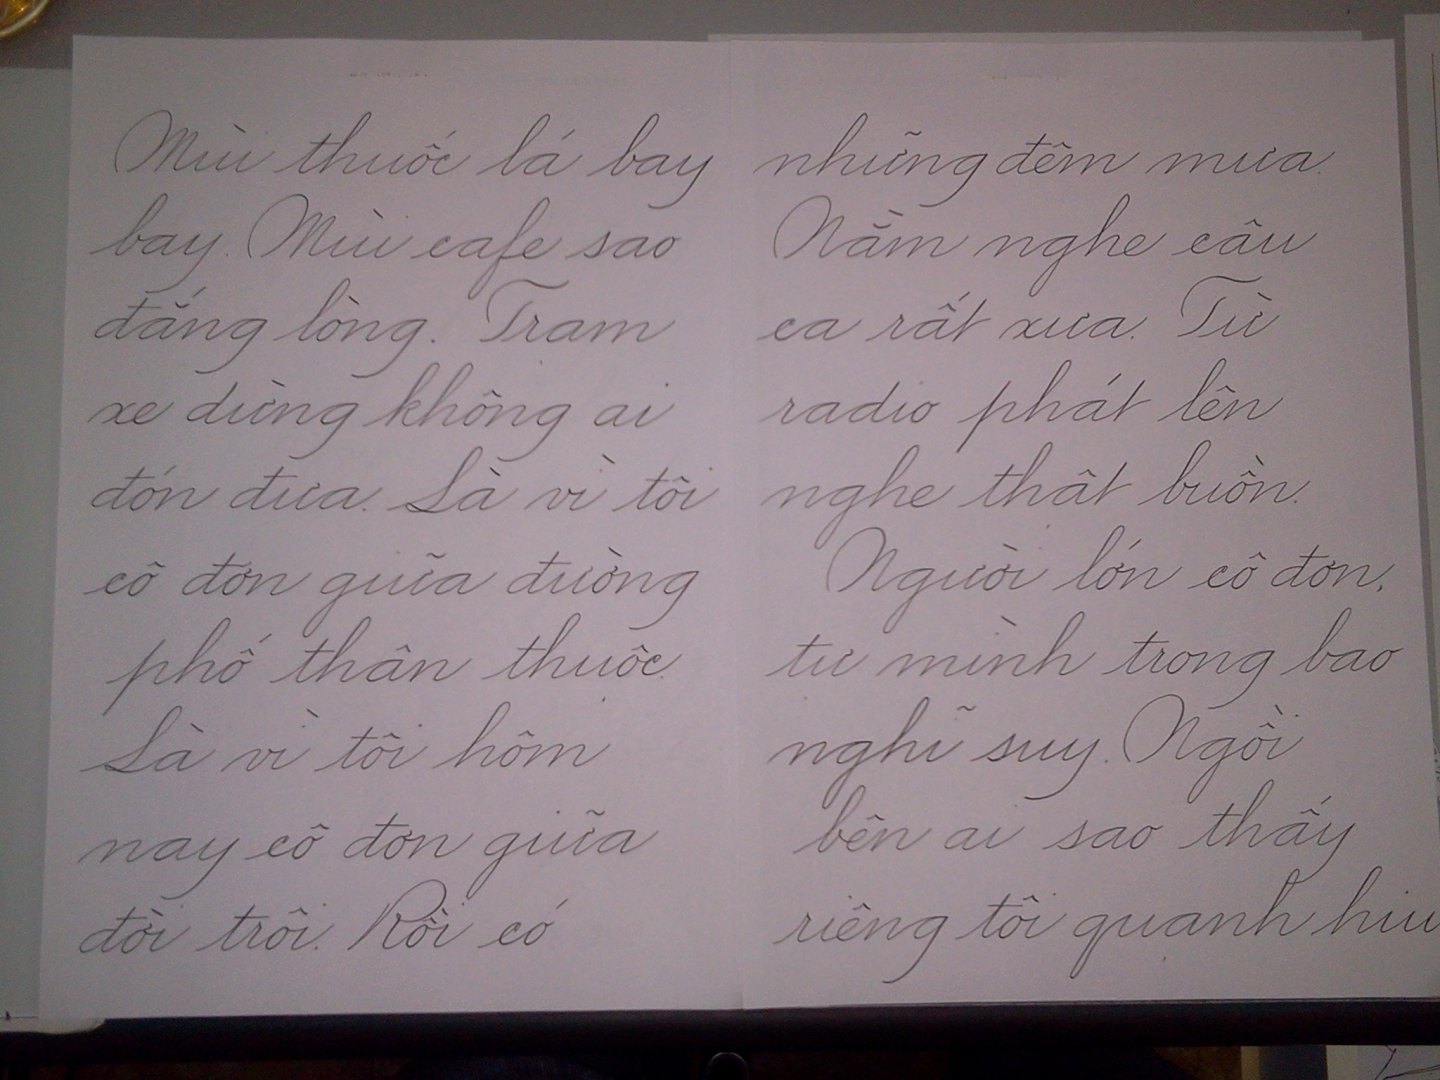 Mùi thuốc lá bay
bay. Mùi cafe sao
đắng lòng. Trạm
xe dừng không ai
đón đưa. Là vì tôi
cô đơn giữa đường
phố thân thuộc.
Là vì tôi hôm
nay cô đơn giữa
đời trôi. Rồi có
những đêm mưa.
Nằm nghe câu
ca rất xưa. Từ
radio phát lên
nghe thật buồn.
Người lớn cô đơn,
tự mình trong bao
nghĩ suy. Ngồi
bên ai sao thấy
riêng tôi quạnh hiu